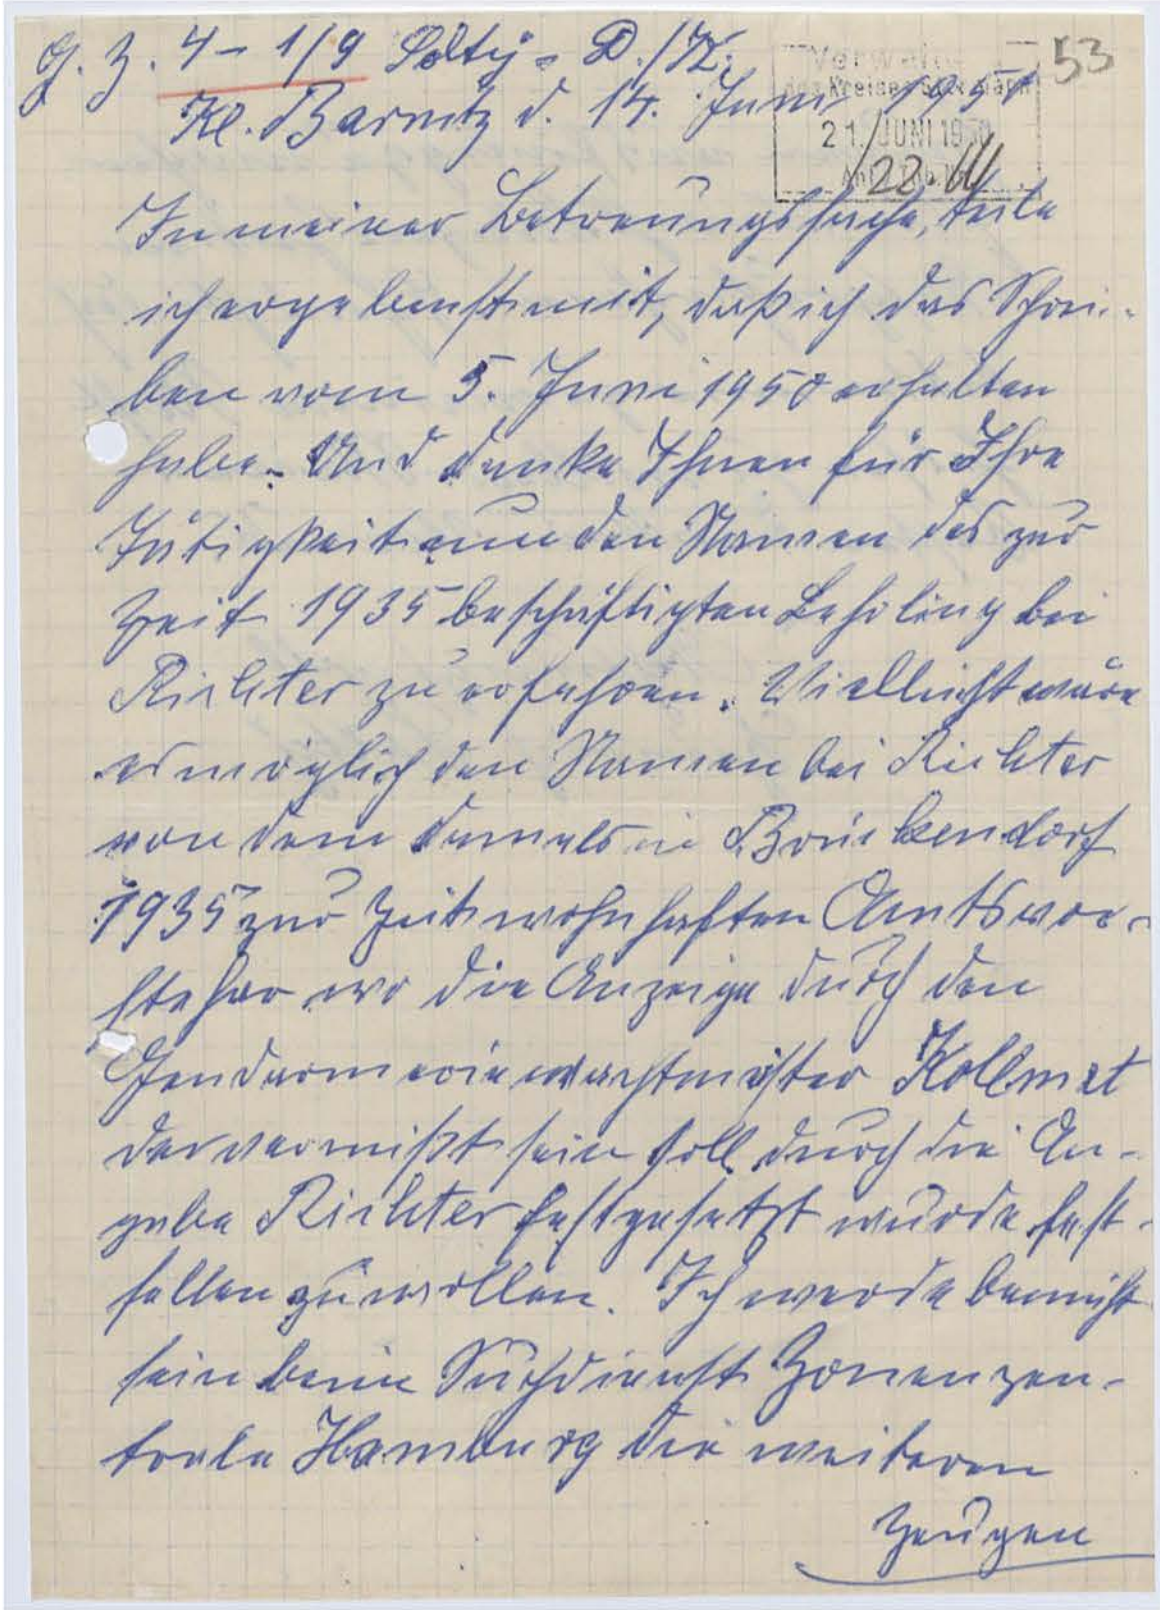 G. Z. 4-1/9 Solty - D./K.
53
Kl. Barnitz d. 14. Juni 1951
Verwaltung
des Kreises Stormarn
21. JUNI 1950
22
In meiner Betreuungssache, teile
ich ergebenst mit, daß ich das Schrei-
ben vom 5. Juni 1950 erhalten
habe. Und danke Ihnen für Ihre
Tätigkeit um den Namen des zur
Zeit 1935 beschäftigten Lehrling bei
Richter zu erfahren. Vielleicht wäre
es möglich den Namen bei Richter
von dem damals in Brückendorf
1935 zur Zeit wohnhaften Amtsvor-
steher wo die Anzeige durch den
Gendarmeriewachtmeister Kollmet
der vermißt sein soll durch die An-
gabe Richter festgesetzt wurde fest-
stellen zu wollen. Ich werde bemüht
sein beim Suchdienst Zonenzen-
trale Hamburg die weiteren
Zeugen